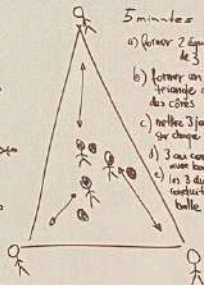 5 minutes
a) former 2 équi
de 3
b) former un
triangle a
des cônes
c) mettre 3 jo
sur chaque
d) 3 au cen
avec bal
e) les 3 du
conduit
balle